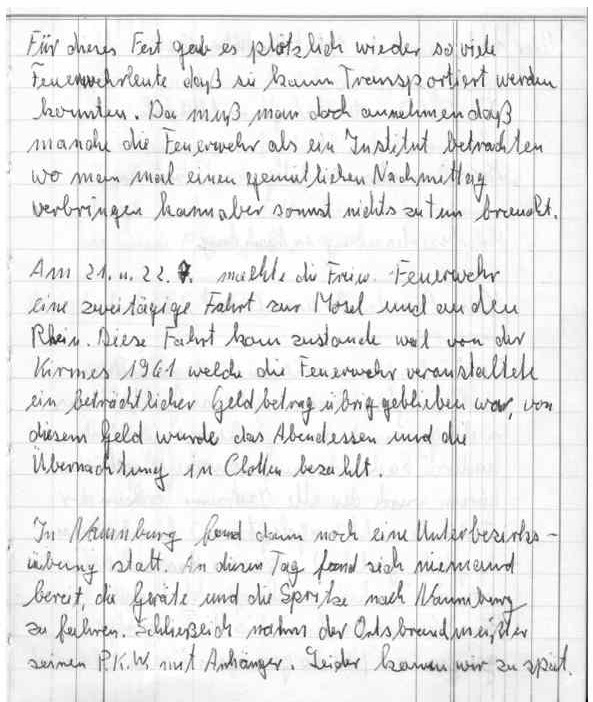 Für dieses Fest gab es plötzlich wieder so viele
Feuerwehrleute daß sie kaum Transportiert werden
konnten. Da muß man doch annehmen daß
manche die Feuerwehr als ein Institut betrachten
wo man mal einen gemütlichen Nachmittag
verbringen kann aber sonnst nichts zu tun braucht.
Am 21. u. 22. machte die Freiw. Feuerwehr
eine zweitägige Fahrt zur Mosel und an den
Rhein. Diese Fahrt kam zustande weil von der
Kirmes 1961 welche die Feuerwehr veranstaltete
ein beträchtlicher Geldbetrag übrig geblieben war, von
diesem Geld wurde das Abendessen und die
Übernachtung in Clotten bezahlt.
In Naumburg fand dann noch eine Unterbezirks-
übung statt. An diesem Tag fand sich niemand
bereit, die Geräte und die Spritze nach Naumburg
zu fahren. Schließlich nahm der Ortsbrandmeister
seinen P.K.W. mit Anhänger. Leider kamen wir zu spät.